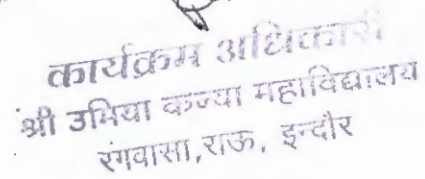 कार्यक्रम अधिकारी
श्री उमिया कन्या महाविद्यालय
रंगवासा, राऊ, इन्दौर